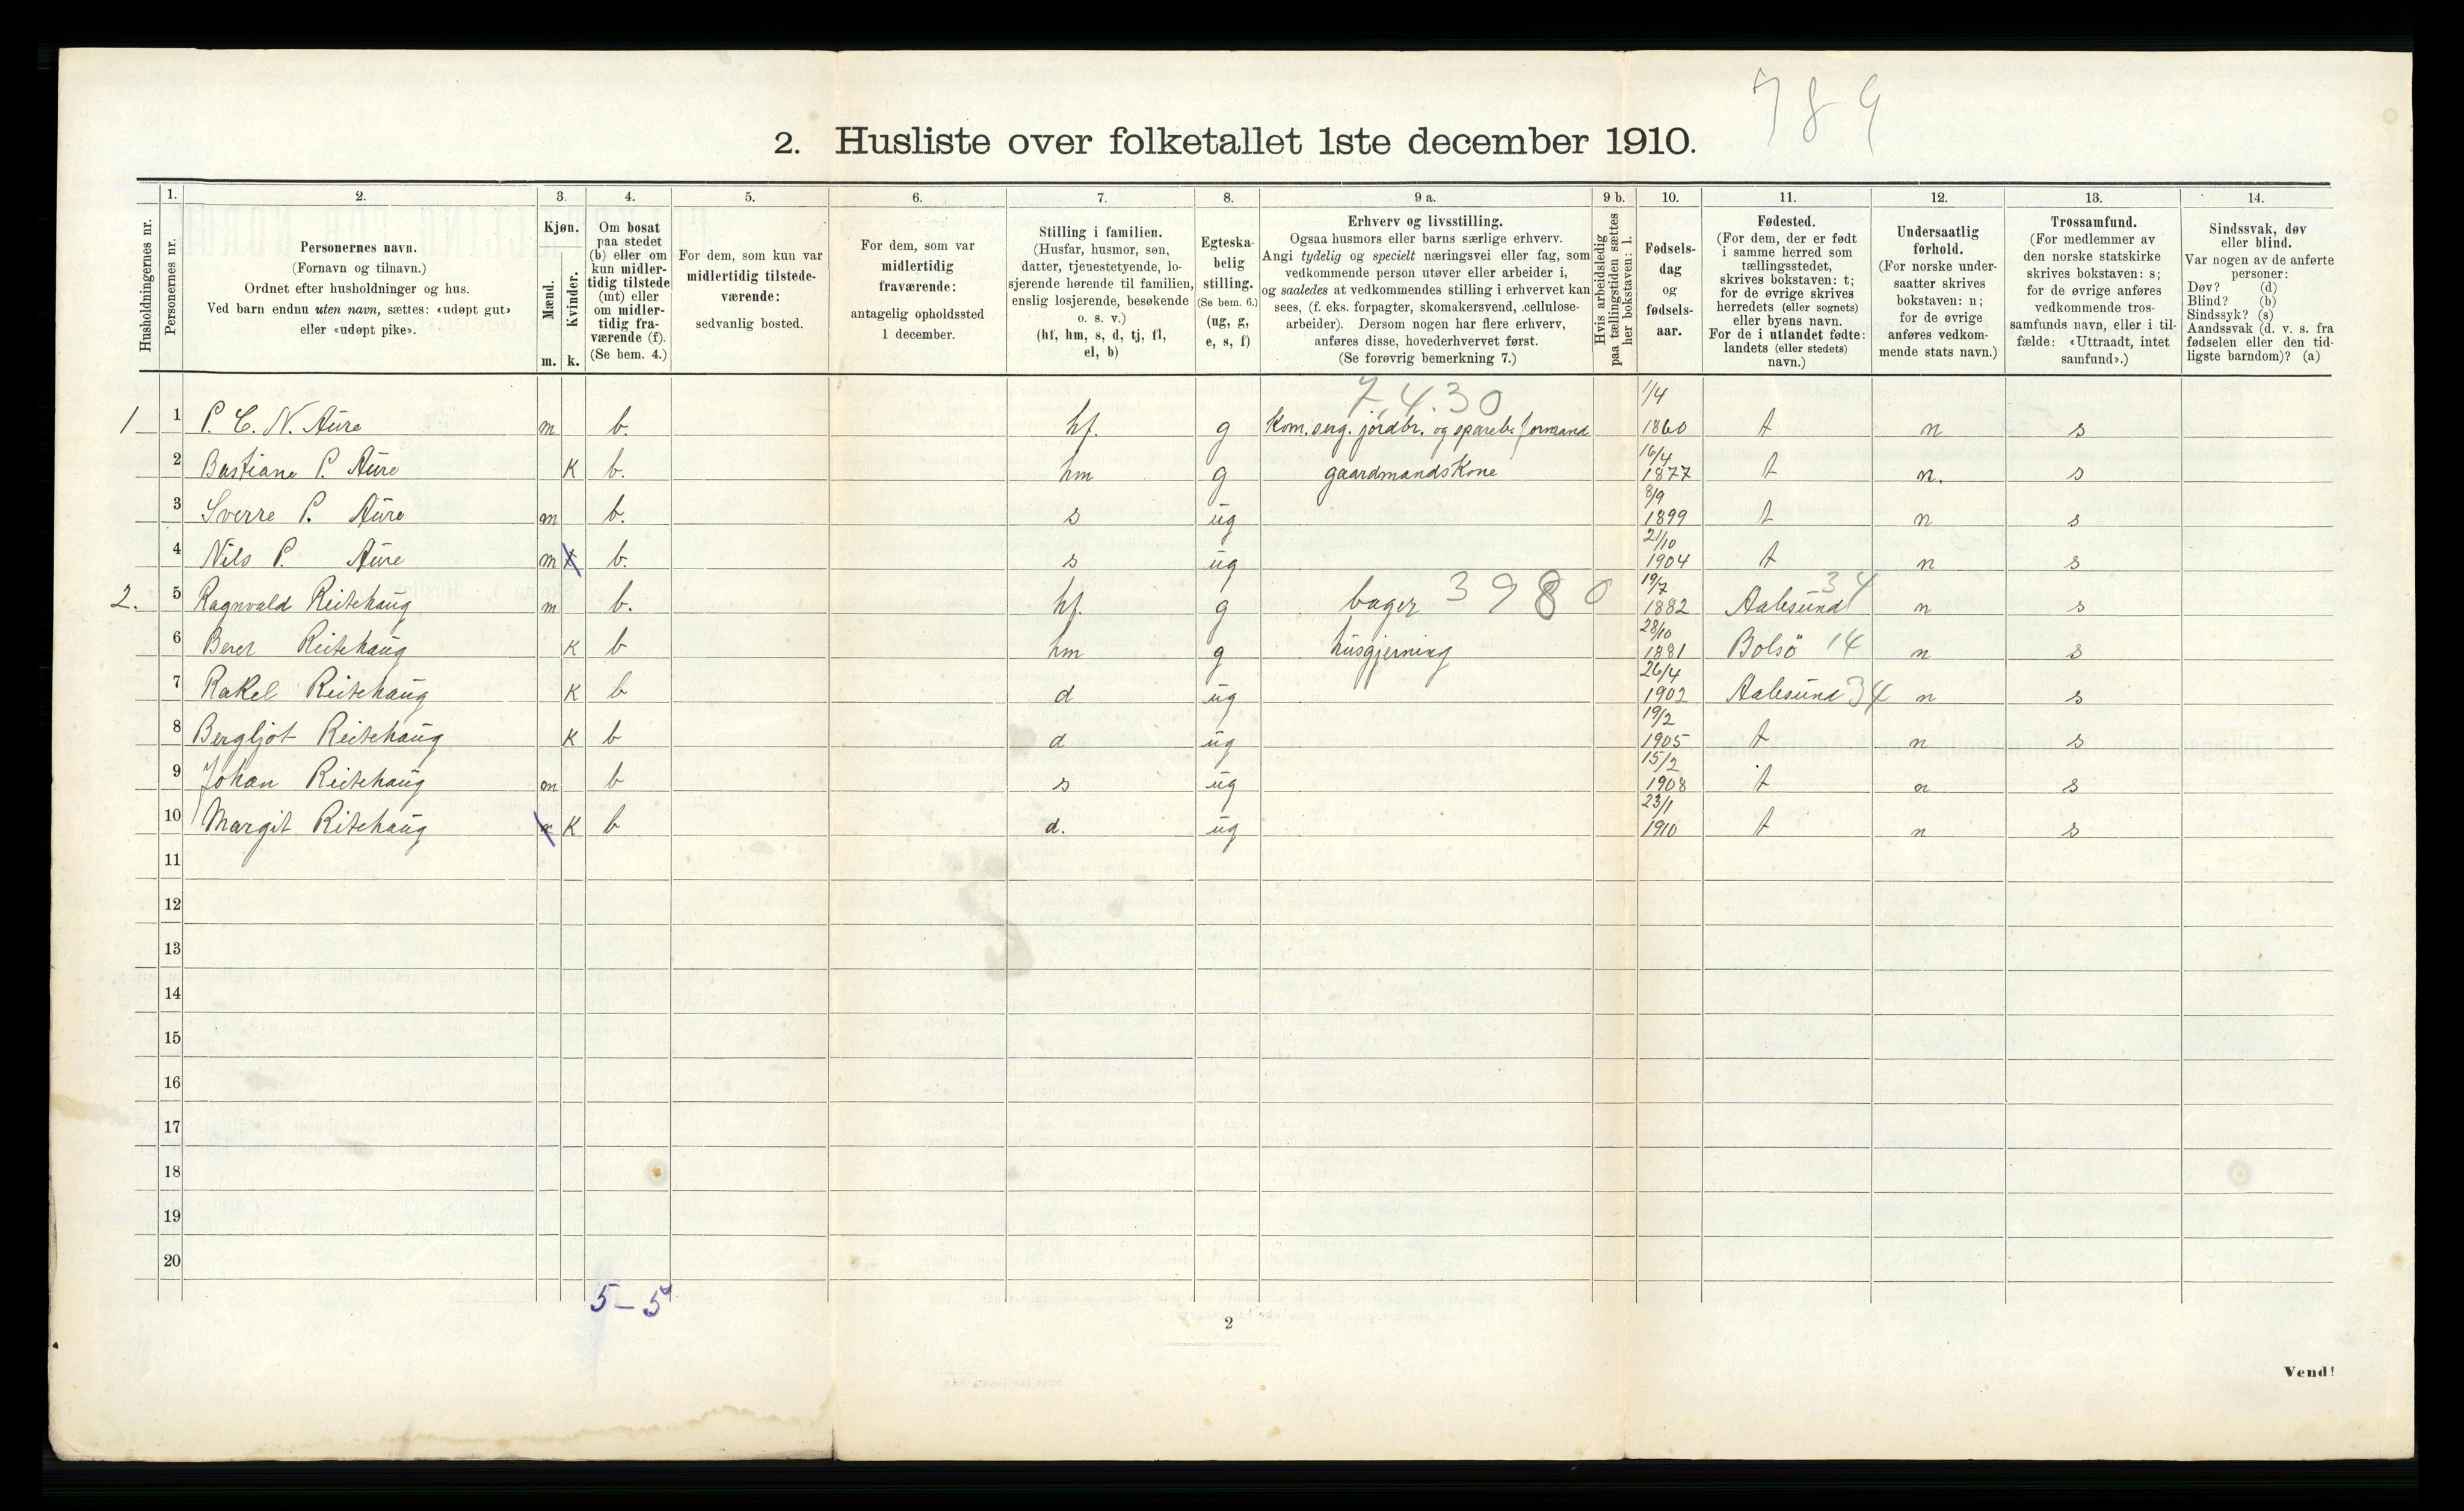 789
2. Husliste over folketallet 1ste december 1910.
Husholdningernes nr.
1.
Personernes nr.
2.
Personernes navn.
(Fornavn og tilnavn.)
Ordnet efter husholdninger og hus.
Ved barn endnu uten navn, sættes: «udøpt gut»
eller «udøpt pike».
3.
Kjøn.
Mænd.
m.
Kvinder.
k.
4.
Om bosat
paa stedet
(b) eller om
kun midler-
tidig tilstede
(mt) eller
om midler-
tidig fra-
værende (f).
(Se bem. 4.)
5.
For dem, som kun var
midlertidig tilstede-
værende:
sedvanlig bosted.
6.
For dem, som var
midlertidig
fraværende:
antagelig opholdssted
1 december.
7.
Stilling i familien.
(Husfar, husmor, søn,
datter, tjenestetyende, lo-
sjerende hørende til familien,
enslig losjerende, besøkende
o. s. v.)
(hf, hm, s, d, tj, fl,
el, b)
8.
Egteska-
belig
stilling.
(Se bem. 6.)
(ug, g,
e, s, f)
9 a.
Erhverv og livsstilling.
Ogsaa husmors eller barns særlige erhverv.
Angi tydelig og specielt næringsvei eller fag, som
vedkommende person utøver eller arbeider i,
og saaledes at vedkommendes stilling i erhvervet kan
sees, (f. eks. forpagter, skomakersvend, cellulose-
arbeider). Dersom nogen har flere erhverv,
anføres disse, hovederhvervet først.
(Se forøvrig bemerkning 7.)
9 b.
Hvis arbeidsledig
paa tællingstiden sættes
her bokstaven: l.
10.
Fødsels-
dag
og
fødsels-
aar.
11.
Fødested.
(For dem, der er født
i samme herred som
tællingsstedet,
skrives bokstaven: t;
for de øvrige skrives
herredets (eller sognets)
eller byens navn.
For de i utlandet fødte:
landets (eller stedets)
navn.)
12.
Undersaatlig
forhold.
(For norske under-
saatter skrives
bokstaven: n;
for de øvrige
anføres vedkom-
mende stats navn.)
13.
Trossamfund.
(For medlemmer av
den norske statskirke
skrives bokstaven: s;
for de øvrige anføres
vedkommende tros-
samfunds navn, eller i til-
fælde: «Uttraadt, intet
samfund».)
14.
Sindssvak, døv
eller blind.
Var nogen av de anførte
personer:
Døv? (d)
Blind? (b)
Sindssyk? (s)
Aandssvak (d. v. s. fra
fødselen eller den tid-
ligste barndom)? (a)
7.4.30
1 1 P. C. N. Aure m b. hf. g Kom. serg. jordbr. og spareb. formand 1/4 1860 t n s
2 Bastiane P. Aure K b. hm g gaardmandskone 16/4 1877 t n. s
3 Sverre P. Aure m b. s ug 8/9 1899 t n s
4 Nils P. Aure m b. s ug 21/10 1904 t n s
2. 5 Ragnvald Reitehaug m b. hf. g bager 3980 19/7 1882 Aalesund 34 n s
6 Beret Reitehaug K b hm g husgjerning 28/10 1881 Bolsö 14 n s
7 Rakel Reitehaug K b d ug 26/4 1902 Aalesund 34 n s
8 Bergljot Reitehaug K b d ug 19/2 1905 t n s
9 Johan Reitehaug m b s ug 15/2 1908 t n s
10 Margit Ritehaug K b d. ug 23/1 1910 t n s
11
12
13
14
15
16
17
18
19
20
5-5
2
Vend!